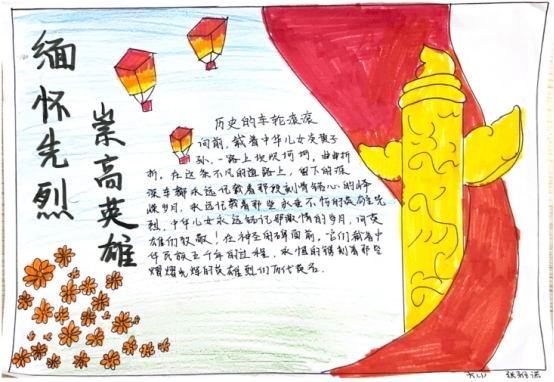 缅怀先烈
崇高英雄
历史的车轮滚滚
向前,载着中华儿女炎黄子
孙,一路上坎坎坷坷,曲曲折
折,在这条不凡的道路上,留下的深
深车辙永远记载着那段刻骨铭心的峥
嵘岁月,永远记载着那些永垂不朽的英雄先
烈,中华儿女永远铭记那激情的岁月,向英
雄们致敬!在神圣的碑面前,它们载着中
华民族五千年的过程,永恒的镌刻着那些
熠熠光辉的英雄烈们百代英名。